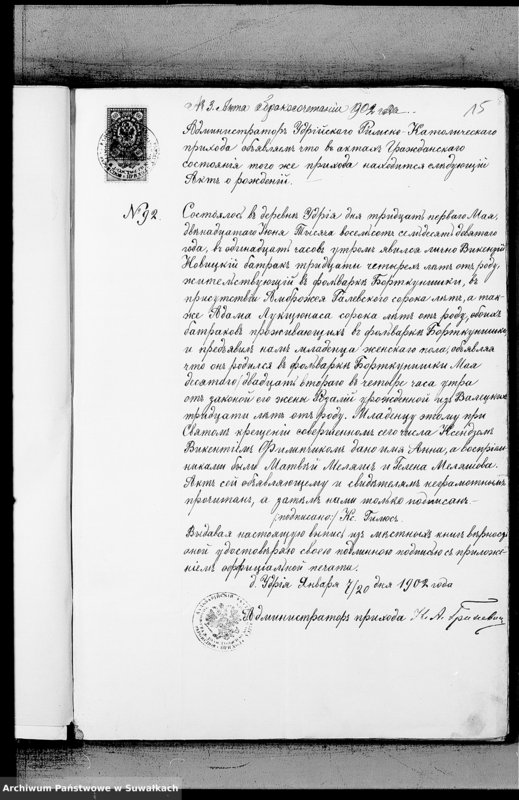 № 3. Акта бракосочетанiи 1902 года.
15
Администраторъ Удрiйского Римско-Католическаго
прихода объявляетъ что въ актахъ Гражданскаго
состоянiя того же прихода находится слѣдующiй
Актъ о рожденiи.
№ 92. Состоялось въ деревнѣ Удрiя дня тридцать перваго Мая,
двѣнадцатаго Iюня Тысяча восемьсотъ семьдесятъ девятаго
года, въ одинадцать часовъ утромъ явился лично Викентiй
Новицкiй батракъ тридцати четырехъ лѣтъ отъ роду,
жительствующiй въ фольваркѣ Борткунишки, въ
присутствiи Амброжея Галевскаго сорока лѣтъ, а так-
же Адама Лукшониса сорока лѣтъ отъ роду, обоихъ
батраковъ проживающихъ въ фольваркѣ Борткунишки
и предъявилъ намъ младенца женскаго пола, объявляя
что онъ родился въ фольваркѣ Борткунишки Мая
десятаго/двадцать втораго въ четыре часа утра
отъ законой его жены Розалiи урожденной изъ Валецкихъ
тридцати лѣтъ отъ роду. Младенцу этому при
Святомъ крещенiи совершенномъ сего числа Ксендзомъ
Викентiемъ дано имя Анна, а воспрiем-
никами были Матвѣй и Гелена
Актъ сей объявляющему и свидѣтелямъ неграмотнымъ
прочитанъ, а затѣмъ нами только подписанъ.-
/подписано:/ Кс. Гилюсъ.
Выдавая настоящую выпись изъ мѣстныхъ книгъ вѣрность
оной удостовѣряю своею подлинною подписью съ приложе-
нiемъ оффицiальной печати.
д. Удрiя Января 7/20 дня 1902 года
Администраторъ прихода К. А.
Archiwum Państwowe w Suwałkach